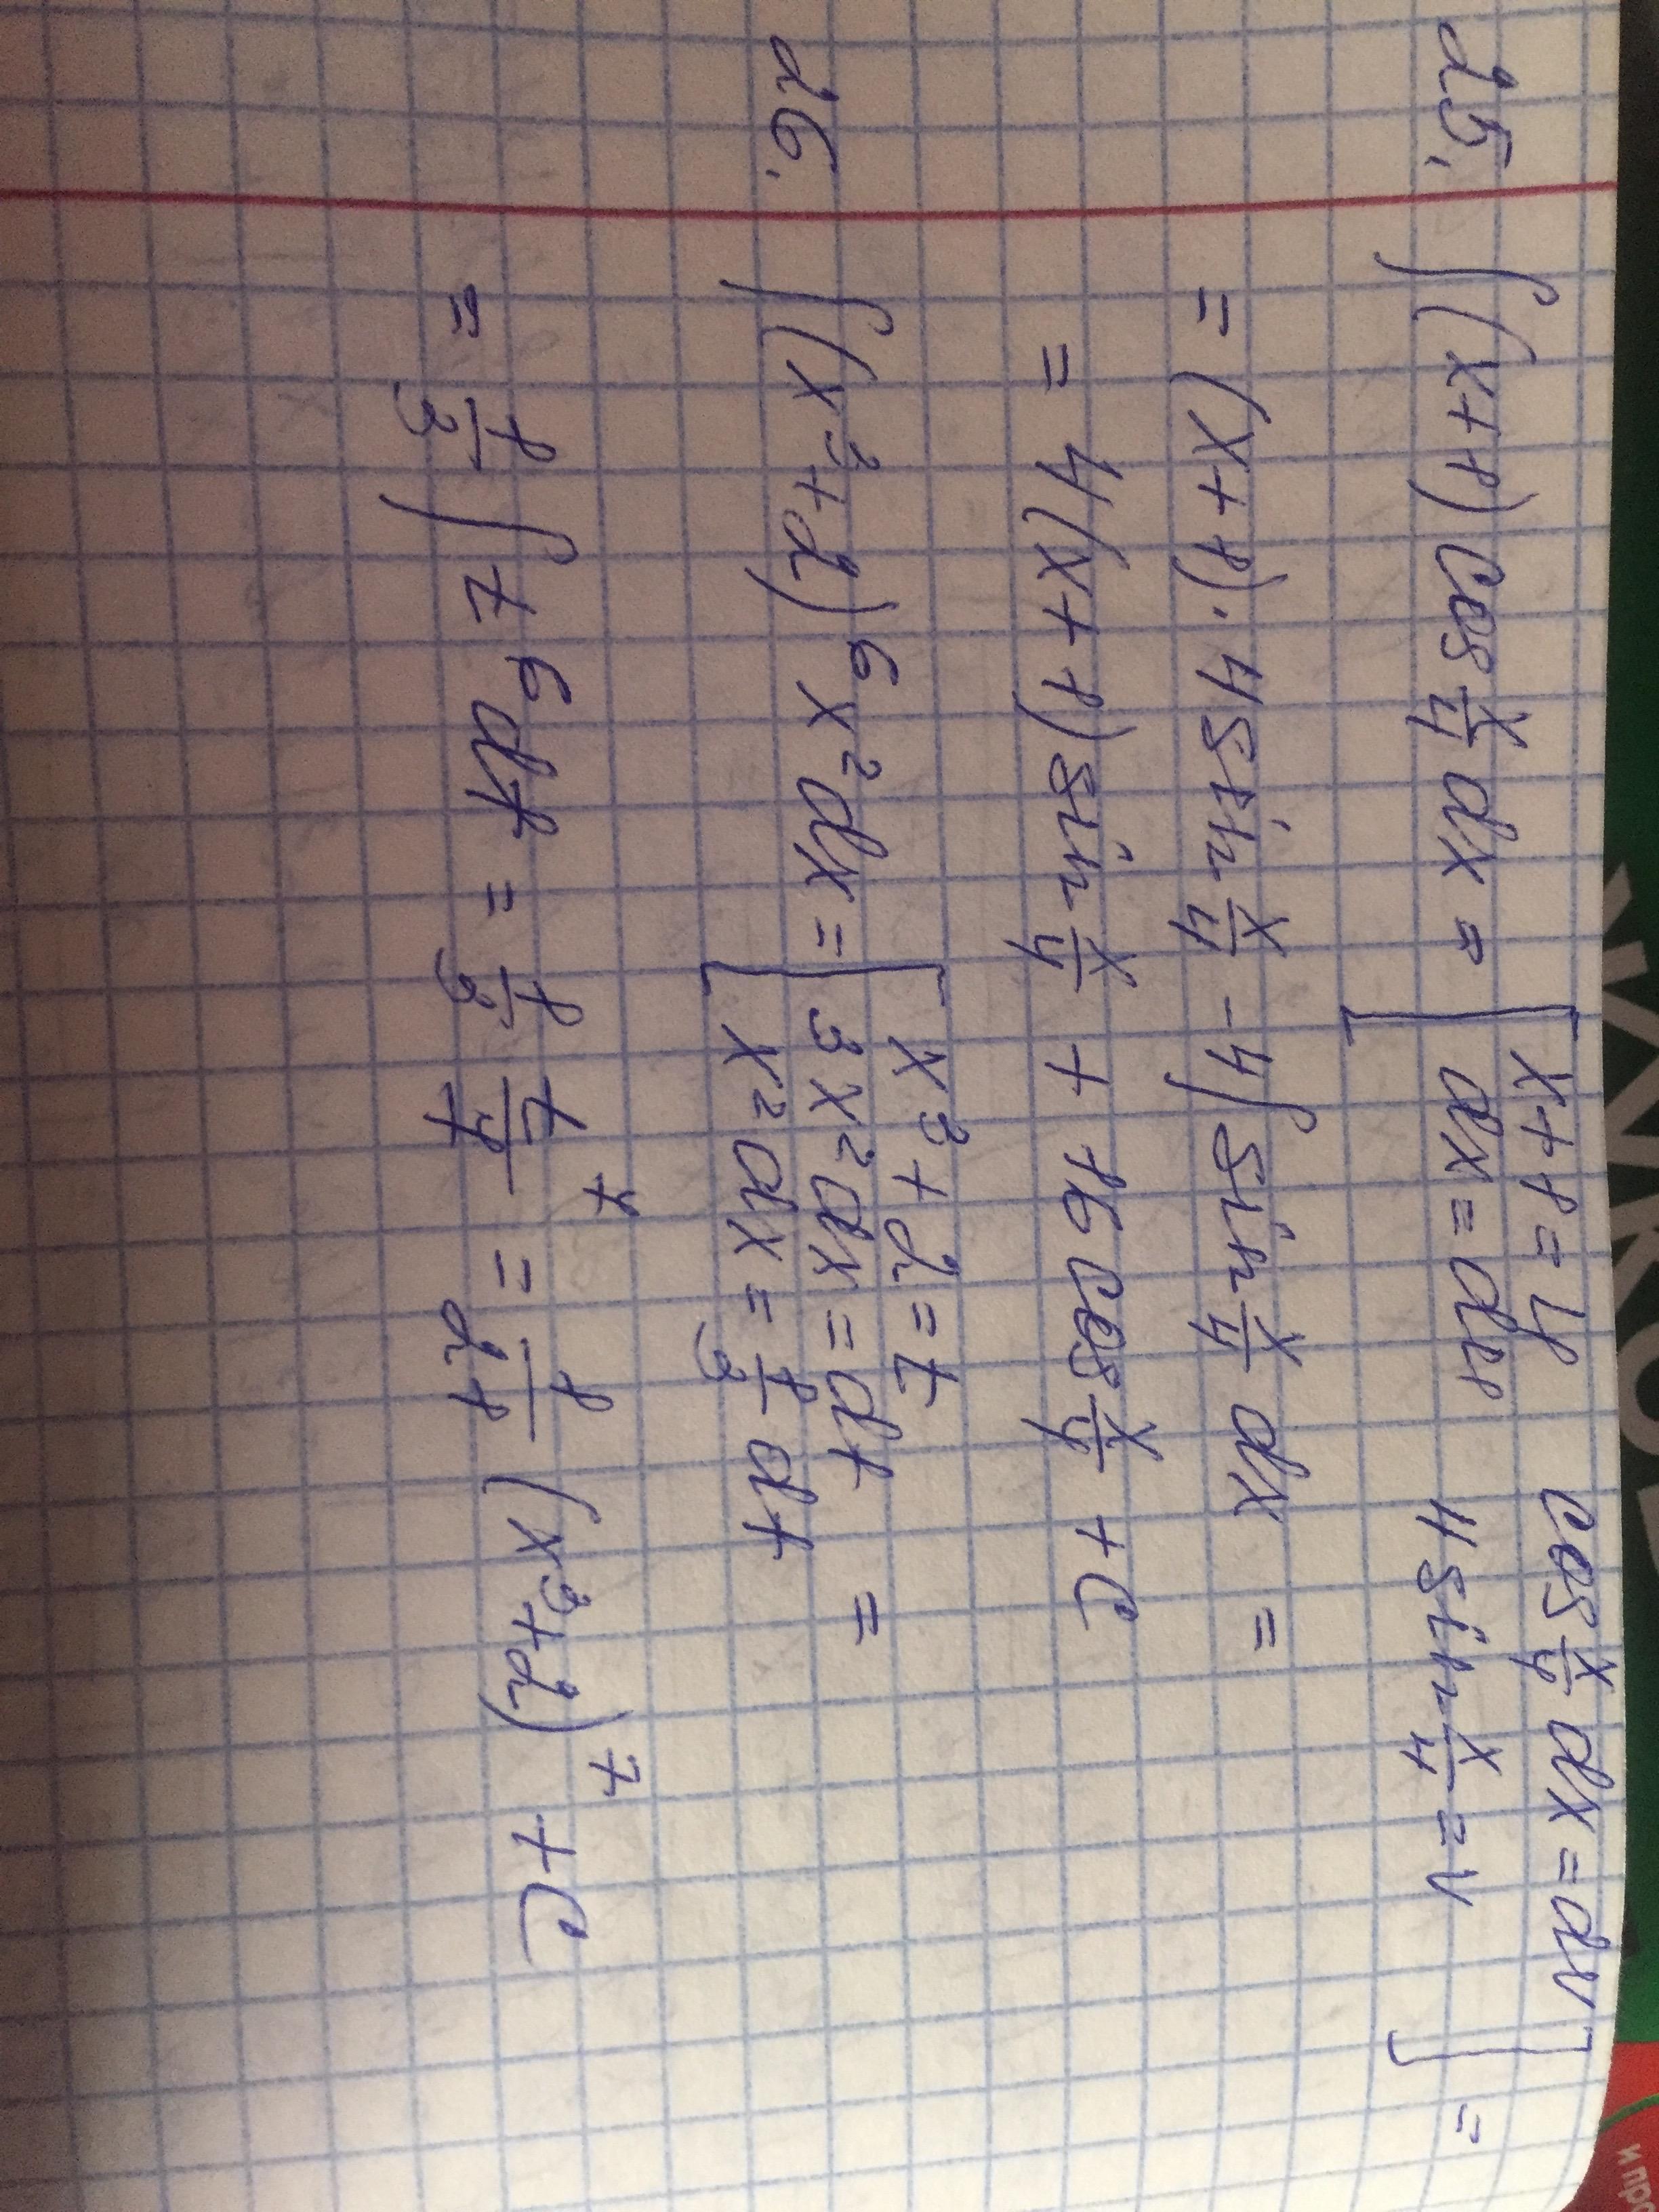 25. ∫(x+1)cos x/4 dx = [x+1=u cos x/4 dx=dv
dx=du 4sin x/4=v] =
=(x+1)·4sin x/4 -4∫sin x/4 dx =
= 4(x+1)sin x/4 + 16cos x/4 +C
26. ∫(x²+2)⁶x²dx= [x³+2=t
3x²dx=dt =
x²dx=1/3 dt
= 1/3∫t⁶dt = 1/3 t⁷/7 = 1/21 (x³+2)⁷+C